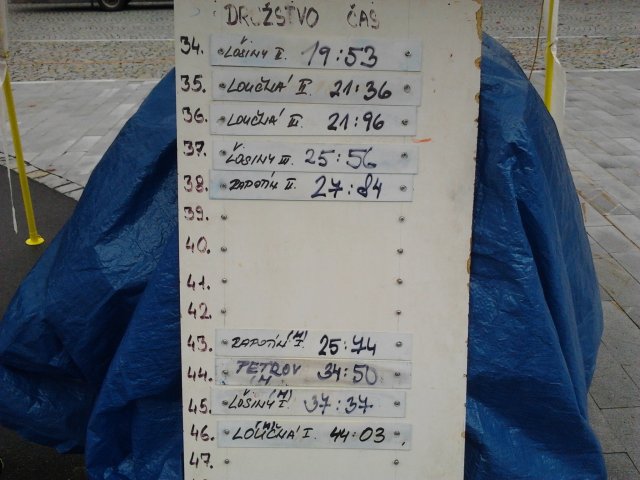 DRUŽSTVO ČAS
34. LOŠINY II. 19:53
35. LOUČNÁ II. 21:36
36. LOUČNÁ III. 21:96
37. LOŠINY III. 25:56
38. RAPOTÍN II. 27:84
39.
40.
41.
42.
43. RAPOTÍN (M) I. 25:74
44. PETROV (M) 34:50
45. LOŠINY (M) I. 37:37
46. LOUČNÁ (M) I. 44:03
47.